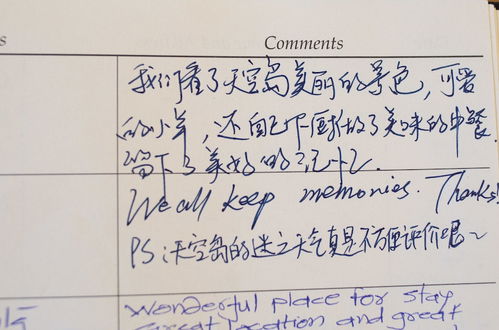 s Comments
我们看了天空岛美丽的景色，可爱
的小羊，还自己下厨做了美味的中餐
留下了美好的记忆.
We all keep memories. Thanks!
PS:天空岛的迷之天气真是不方便评价呢~
Wonderful place for stay
great location and great